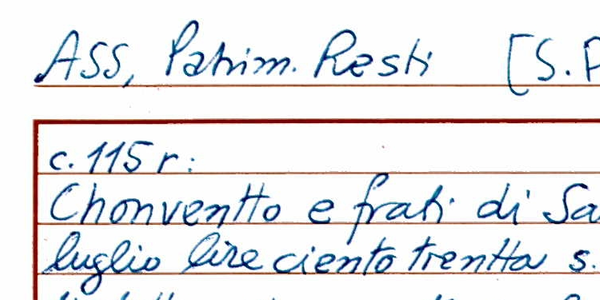 ASS, Patrim. Resti [S.
c. 115 r:
Chonventto e frati di
luglio lire ciento trentta s.